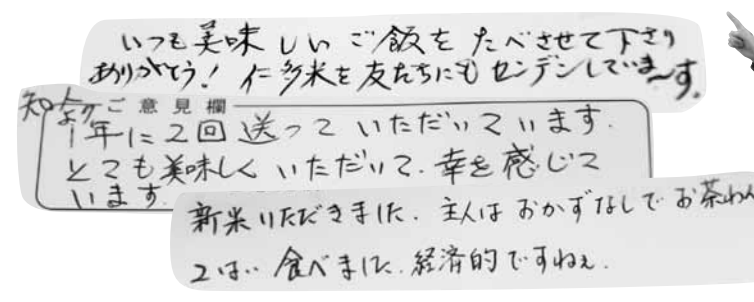 いつも美味しいご飯をたべさせて下さり
ありがとう！仁多米を友だちにもセンデンしていま〜す。
知人より
ご意見欄
1年に2回送っていただいています.
とても美味しくいただいて.幸を感じて
います.
新米いただきました.主人はおかずなしでお茶わん
2はい食べました.経済的ですねぇ.